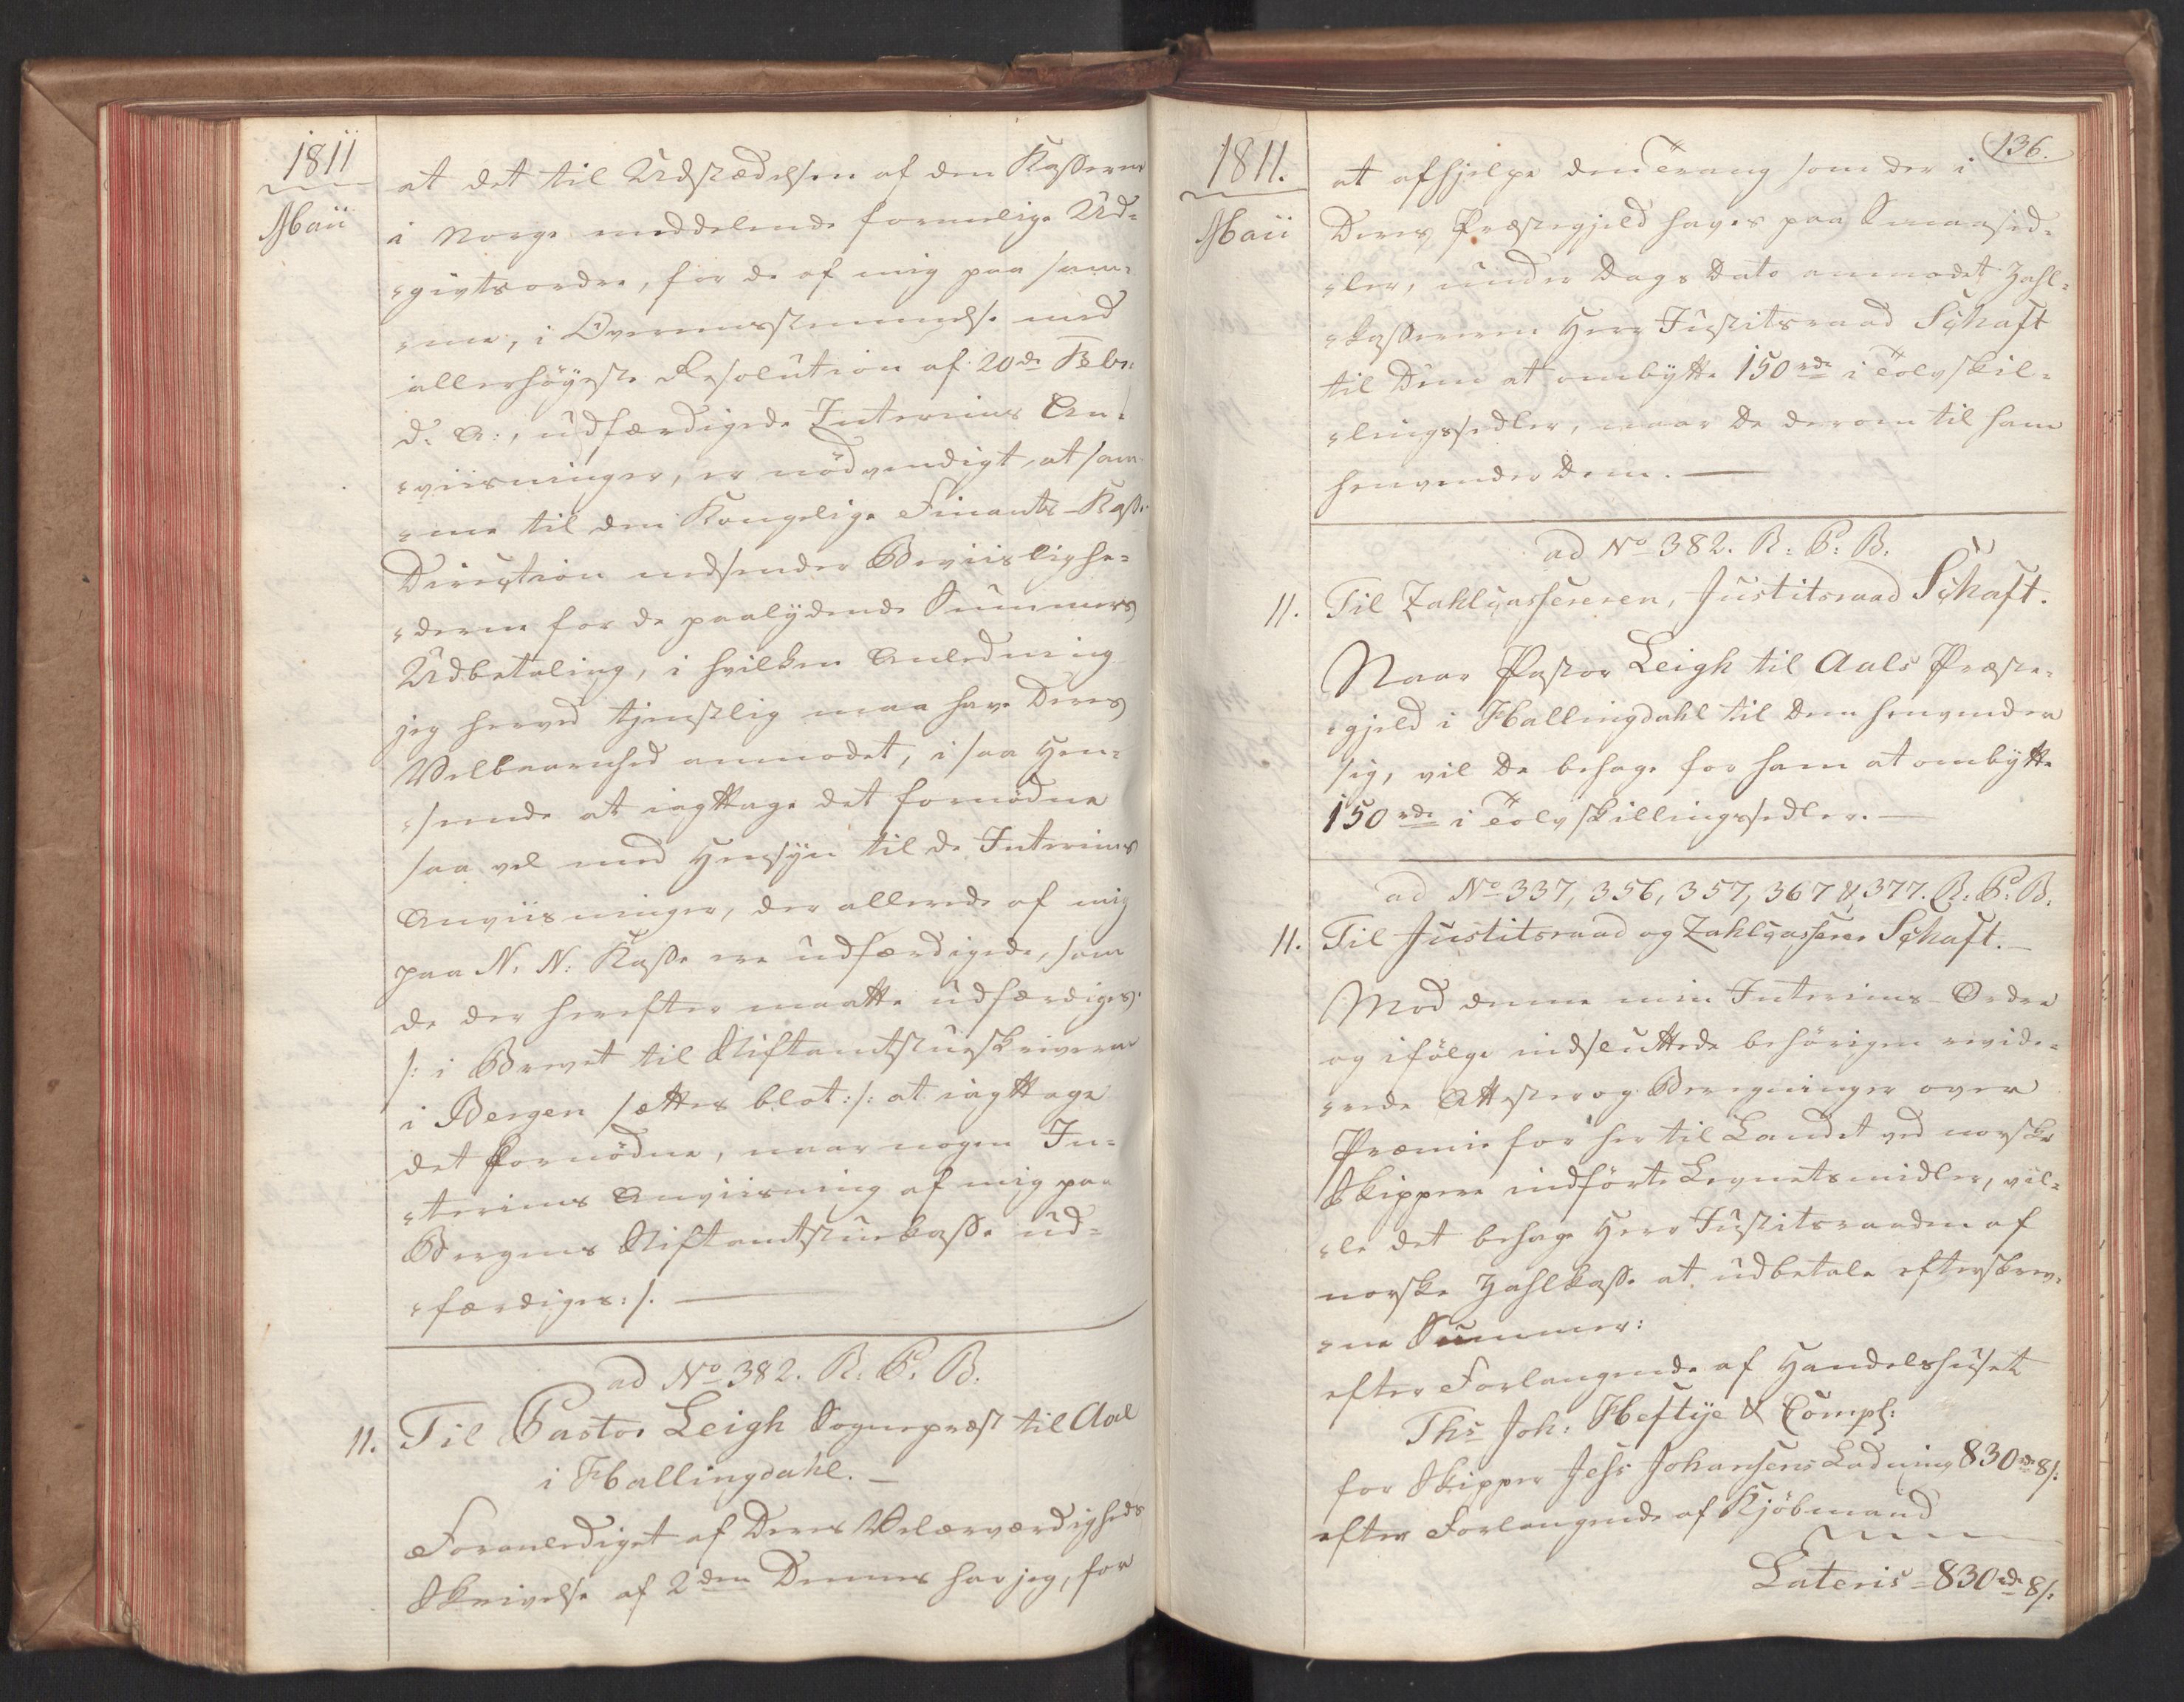 1811
Maii
at det til Udstædelsen af den Kasserne
i Norge meddelende formelige Ud-
givtsordre, for de af mig paa sam-
me, i Overeensstemmelse med
allerhöyeste Resolution af 20de Febr:
d: A:, udfærdigede Interims An-
viisninger, er nödvendigt, at sam-
me til den Kongelige Finants-Kasse
Direction nedsender Beviislighe-
derne for de paalydende Summers
Udbetaling, i hvilken Anledning
jeg herved tjenstlig maa have Deres
Velbaarnhed anmodet, i saa Hen-
seende at iagttage det fornödne
saa vel med Hensyn til de Interims
Anviisninger, der allerede af mig
paa N. N: Kasse ere udfærdigede, som
de der herefter maatte udfærdiges.
/: i Brevet til Stiftamtstueskriveren
i Bergen sættes blot :/: at iagttage
det fornödne, naar nogen In-
terims Anviisning af mig paa
Bergens Stiftamtstuekasse ud-
færdiges :/. —
ad No 382. R: P: B.
11. Til Pastor Leigh Sognepræst til Aal
i Hallingdahl. —
Foranlediget af Deres Velærværdigheds
Skrivelse af 2den Dennes har jeg, for
136.
1811.
Maii
at afhjelpe den Trang som der i
Deres Præstegjeld haves paa Smaased-
ler, under Dags Dato anmodet Zahl-
kasserern Herr Justitsraad Schaft
til Dem at ombytte 150 rdr i Tolvskil-
lingssedler, naar De derom til ham
henvender Dem. —
ad No 382. R: P: B.
11. Til Zahlcassereren, Justitsraad Schaft.
Naar Pastor Leigh til Aals Præste-
gjeld i Hallingdahl til Dem henvender
sig, vil De behage for ham at ombytte
150 rdr i Tolvskillingssedler. —
ad No 337, 356, 357, 367 & 377. R: P: B.
11. Til Justitsraad og Zahlcasserer Schaft. —
Mod denne min Interims-Ordre
og ifölge indsluttede behörigen revide-
rede Attester og Beregninger over
Præmie for her til Landet ved norske
Skippere indförte Levnetsmidler, vil-
le det behage Herr Justitsraaden af
norske Zahlkasse at udbetale efterskrev-
ne Summer:
efter Forlangende af Handelshuset
Ths Joh: Heftije & Comph:
for Skipper Jens Johansens Ladning 830 rdr 8/:
efter Forlangende af Kjöbmand
Lateris = 830 rdr 8/: